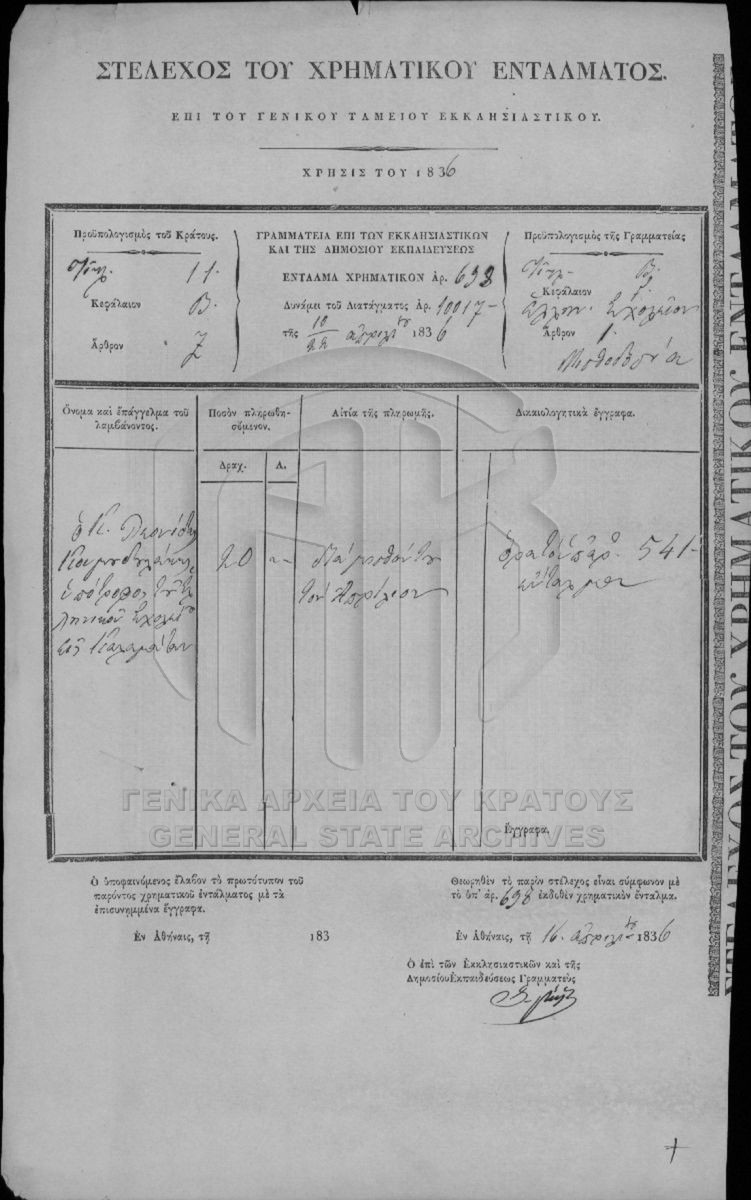 ΣΤΕΛΕΧΟΣ ΤΟΥ ΧΡΗΜΑΤΙΚΟΥ ΕΝΤΑΛΜΑΤΟΣ.
ΕΠΙ ΤΟΥ ΓΕΝΙΚΟΥ ΤΑΜΕΙΟΥ ΕΚΚΛΗΣΙΑΣΤΙΚΟΥ.
ΧΡΗΣΙΣ ΤΟΥ 1836
Προϋπολογισμὸς τοῦ Κράτους.
Τίτλ. 11.
Κεφάλαιον Β.
Ἄρθρον 7
ΓΡΑΜΜΑΤΕΙΑ ΕΠΙ ΤΩΝ ΕΚΚΛΗΣΙΑΣΤΙΚΩΝ
ΚΑΙ ΤΗΣ ΔΗΜΟΣΙΟΥ ΕΚΠΑΙΔΕΥΣΕΩΣ
ΕΝΤΑΛΜΑ ΧΡΗΜΑΤΙΚΟΝ ἀρ. 698
Δυνάμει τοῦ Διατάγματος ἀρ. 10017
τῆς 10/22 ἀπριλίου 1836
Προϋπολογισμὸς τῆς Γραμματείας
Τίτλ. Β.
Κεφάλαιον
Ἑλλην. Σχολεῖον
Ἄρθρον 1.
Μισθοδοσία
Ὄνομα καὶ ἐπάγγελμα τοῦ
λαμβάνοντος.
Ποσὸν πληρωθη-
σόμενον.
Αἰτία τῆς πληρωμῆς.
Δικαιολογητικὰ ἔγγραφα.
Δραχ.
Λ.
ὁ Κ.
ὑπότροφος τοῦ Ἑλ
ληνικοῦ Σχολείου
Καλαμάτας
20
διὰ μισθόν του
τὸν Ἀπρίλιον
ὅρα τὸ ὑπ' ἀρ. 541
ἔνταλμα
Ἔγγραφα.
ΓΕΝΙΚΑ ΑΡΧΕΙΑ ΤΟΥ ΚΡΑΤΟΥΣ
GENERAL STATE ARCHIVES
Ὁ ὑποφαινόμενος ἔλαβον τὸ πρωτότυπον τοῦ
παρόντος χρηματικοῦ ἐντάλματος μὲ τὰ
ἐπισυνημμένα ἔγγραφα.
Ἐν Ἀθήναις, τῇ 183
Θεωρηθὲν τὸ παρὸν στέλεχος εἶναι σύμφωνον μὲ
τὸ ὑπ' ἀρ. 698 ἐκδοθὲν χρηματικὸν ἔνταλμα.
Ἐν Ἀθήναις, τῇ 16. ἀπριλίου 1836
Ὁ ἐπὶ τῶν Ἐκκλησιαστικῶν καὶ τῆς
Δημοσίου Ἐκπαιδεύσεως Γραμματεὺς
ΣΤΕΛΕΧΟΣ ΤΟΥ ΧΡΗΜΑΤΙΚΟΥ ΕΝΤΑΛΜΑΤΟΣ